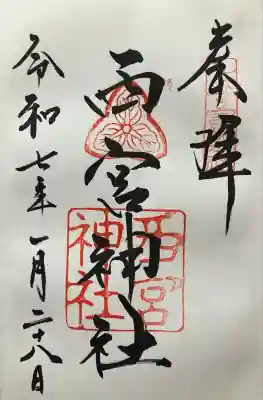 奉拝
西宮神社
西宮
神社
令和七年一月二十八日